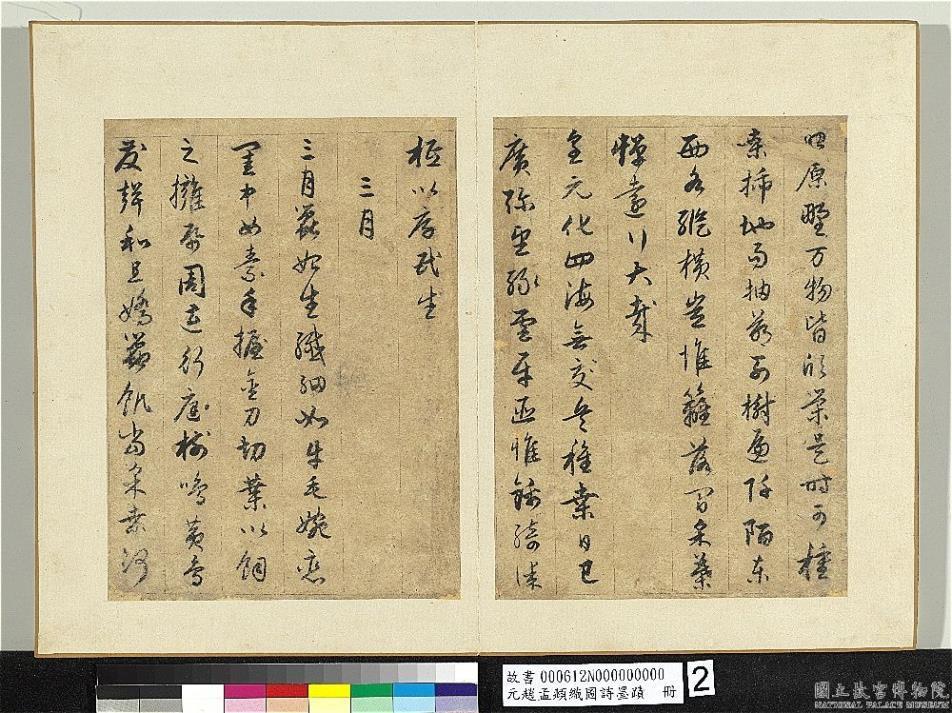 照原野万物皆欣榮是時可種
桑插地易抽萌列樹遍阡陌東
西各縱橫豈惟籬落間采葉
憚遠行大哉
皇元化四海無交兵種桑日已
廣彌望綠雲平匪惟錦綺謀
祗以厚民生
三月
三月蠶始生纖細如牛毛婉戀
閨中女素手握金刀切葉以飼
之擁周行庭樹鳴黃鳥
發聲和且嬌蠶飢當采桑何
故書 000612N000000000
元趙孟頫織圖詩墨蹟 冊
2
國立故宮博物院
NATIONAL PALACE MUSEUM